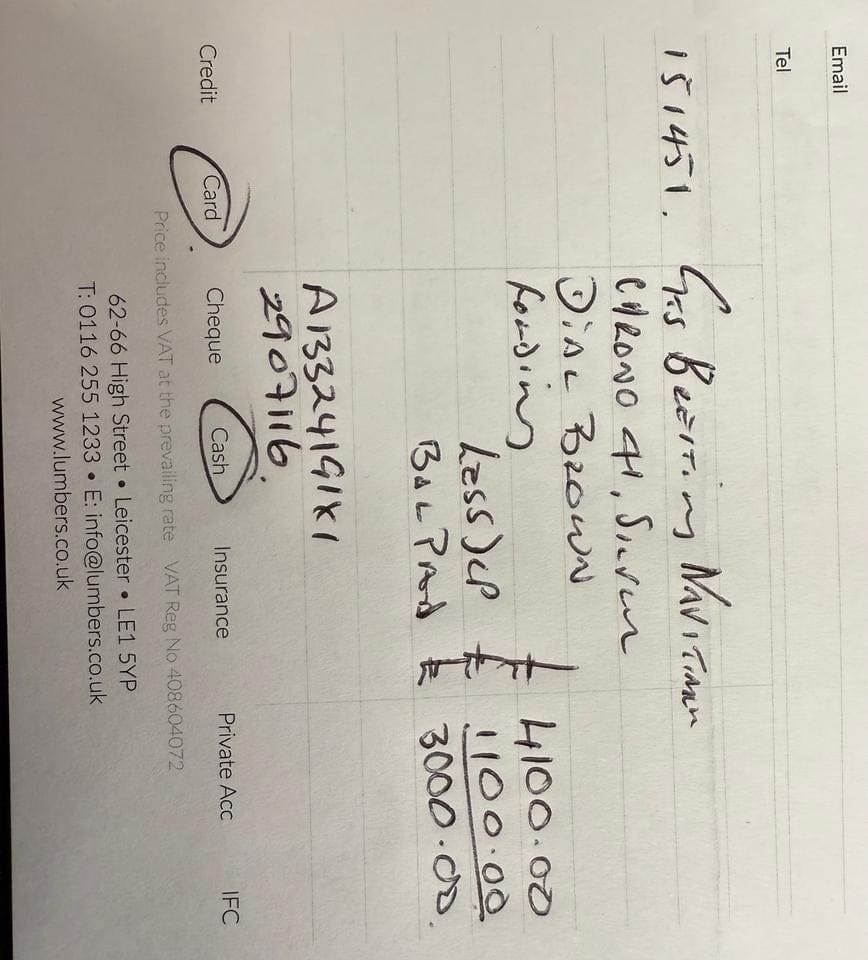 Email
Tel
151451. Gts Breitling Navitimer
CHRONO 41, Silver
Dial Brown
£ 4100.00
Less Dep £ 1100.00
Bal Paid £ 3000.00.
A13324191X1
2907116
Credit Card Cheque Cash Insurance Private Acc IFC
Price includes VAT at the prevailing rate VAT Reg No 408604072
62-66 High Street • Leicester • LE1 5YP
T: 0116 255 1233 • E: info@lumbers.co.uk
www.lumbers.co.uk